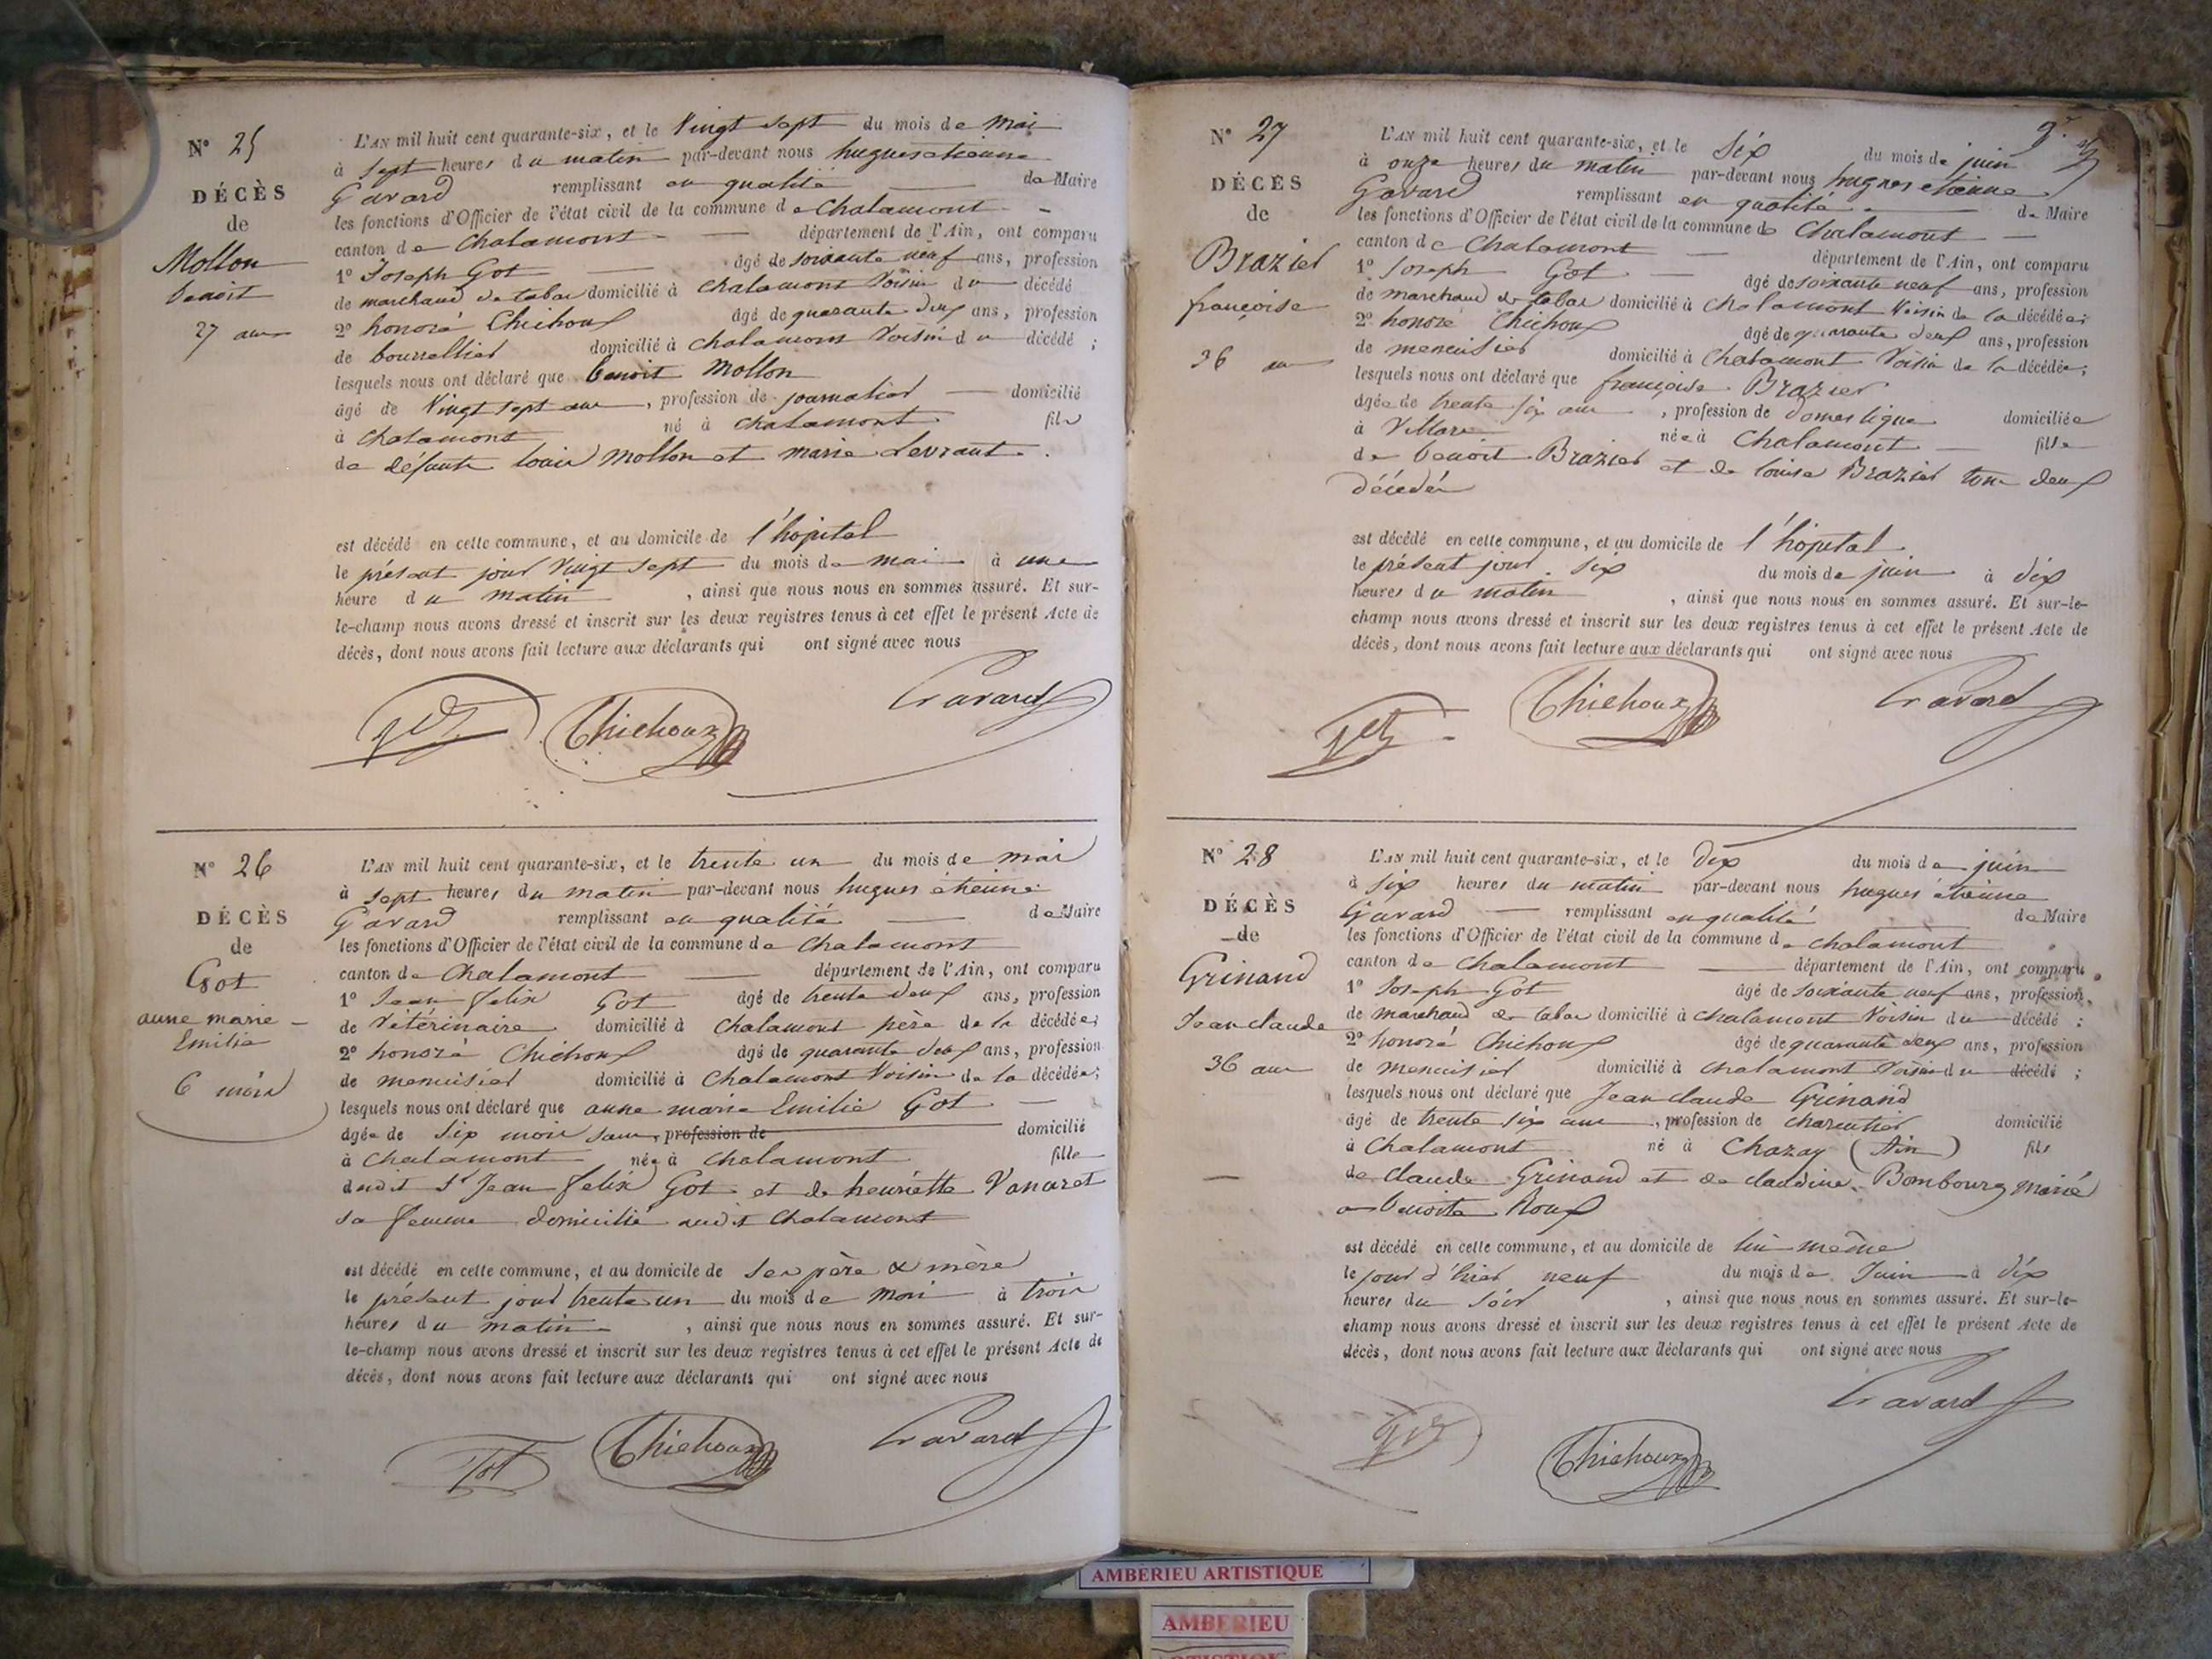 N° 25
DÉCÈS
de
Mollon
benoit
27 ans
L'AN mil huit cent quarante-six, et le Vingt sept du mois de mai
à sept heures du matin par-devant nous hugues etienne
Gavard remplissant en qualité de Maire
les fonctions d'Officier de l'état civil de la commune de Chalamont
canton de Chalamont département de l'Ain, ont comparu
1° Joseph Got âgé de soixante neuf ans, profession
de marchand de tabac domicilié à chalamont Voisin du décédé
2° honoré Chichoux âgé de quarante deux ans, profession
de bourrellier domicilié à chalamont Voisin du décédé ;
lesquels nous ont déclaré que benoit Mollon
âgé de Vingt sept ans, profession de journalier domicilié
à chalamont né à chalamont fils
de défunts louis Mollon et marie Levraut.
est décédé en cette commune, et au domicile de l'hôpital
le présent jour Vingt sept du mois de mai à une
heure du matin, ainsi que nous nous en sommes assuré. Et sur-
le-champ nous avons dressé et inscrit sur les deux registres tenus à cet effet le présent Acte de
décès, dont nous avons fait lecture aux déclarants qui ont signé avec nous
Got Chichoux Gavard
N° 26
DÉCÈS
de
Got
anne marie
Emilie
6 mois
L'AN mil huit cent quarante-six, et le trente un du mois de mai
à sept heures du matin par-devant nous hugues étienne
Gavard remplissant en qualité de Maire
les fonctions d'Officier de l'état civil de la commune de Chalamont
canton de Chalamont département de l'Ain, ont comparu
1° Jean felix Got âgé de trente deux ans, profession
de Vétérinaire domicilié à chalamont père de la décédée;
2° honoré Chichoux âgé de quarante deux ans, profession
de menuisier domicilié à Chalamont Voisin de la décédée;
lesquels nous ont déclaré que anne marie Emilie Got
âgée de six mois sans, profession de domicilié
à chalamont née à chalamont fille
dudit Sr Jean felix Got et de henriette Vanaret
sa femme domicilié audit Chalamont
est décédé en cette commune, et au domicile de ses père & mère
le présent jour trente un du mois de mai à trois
heures du matin, ainsi que nous nous en sommes assuré. Et sur-
le-champ nous avons dressé et inscrit sur les deux registres tenus à cet effet le présent Acte de
décès, dont nous avons fait lecture aux déclarants qui ont signé avec nous
Got Chichoux Gavard
N° 27
DÉCÈS
de
Brazier
françoise
36 ans
L'AN mil huit cent quarante-six, et le Six du mois de juin
à onze heures du matin par-devant nous hugues etienne
Gavard remplissant en qualité de Maire
les fonctions d'Officier de l'état civil de la commune de Chalamont
canton de Chalamont département de l'Ain, ont comparu
1° Joseph Got âgé de soixante neuf ans, profession
de marchand de tabac domicilié à chalamont Voisin de la décédée;
2° honoré Chichoux âgé de quarante deux ans, profession
de menuisier domicilié à Chalamont Voisin de la décédée;
lesquels nous ont déclaré que françoise Brazier
âgée de trente six ans, profession de domestique domiciliée
à Villars née à Chalamont fille
de benoit Brazier et de louise Brazier tous deux
décédés
est décédé en cette commune, et au domicile de l'hôpital
le présent jour six du mois de juin à dix
heures du matin, ainsi que nous nous en sommes assuré. Et sur-le-
champ nous avons dressé et inscrit sur les deux registres tenus à cet effet le présent Acte de
décès, dont nous avons fait lecture aux déclarants qui ont signé avec nous
Got Chichoux Gavard
N° 28
DÉCÈS
de
Grinand
Jean claude
36 ans
L'AN mil huit cent quarante-six, et le Dix du mois de juin
à six heures du matin par-devant nous hugues étienne
Gavard remplissant en qualité de Maire
les fonctions d'Officier de l'état civil de la commune de chalamont
canton de Chalamont département de l'Ain, ont comparu
1° Joseph Got âgé de soixante neuf ans, profession,
de marchand de tabac domicilié à chalamont Voisin du décédé ;
2° honoré Chichoux âgé de quarante deux ans, profession
de menuisier domicilié à chalamont Voisin du décédé ;
lesquels nous ont déclaré que Jean claude Grinand
âgé de trente six ans, profession de charentier domicilié
à Chalamont né à Chazay (Ain) fils
de claude Grinand et de claudine Bombourg marié
a benoite Roux
est décédé en cette commune, et au domicile de lui même
le jour d'hier neuf du mois de Juin à dix
heures du soir, ainsi que nous nous en sommes assuré. Et sur-le-
champ nous avons dressé et inscrit sur les deux registres tenus à cet effet le présent Acte de
décès, dont nous avons fait lecture aux déclarants qui ont signé avec nous
Got Chichoux Gavard
AMBERIEU ARTISTIQUE
AMBERIEU
ARTISTIQUE